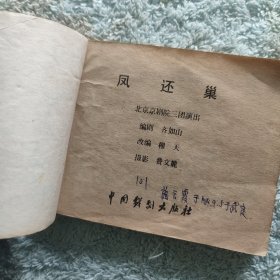 凤还巢
北京京剧院三团演出
编剧 齐如山
改编 穆天
摄影 费文麓
中国戏剧出版社